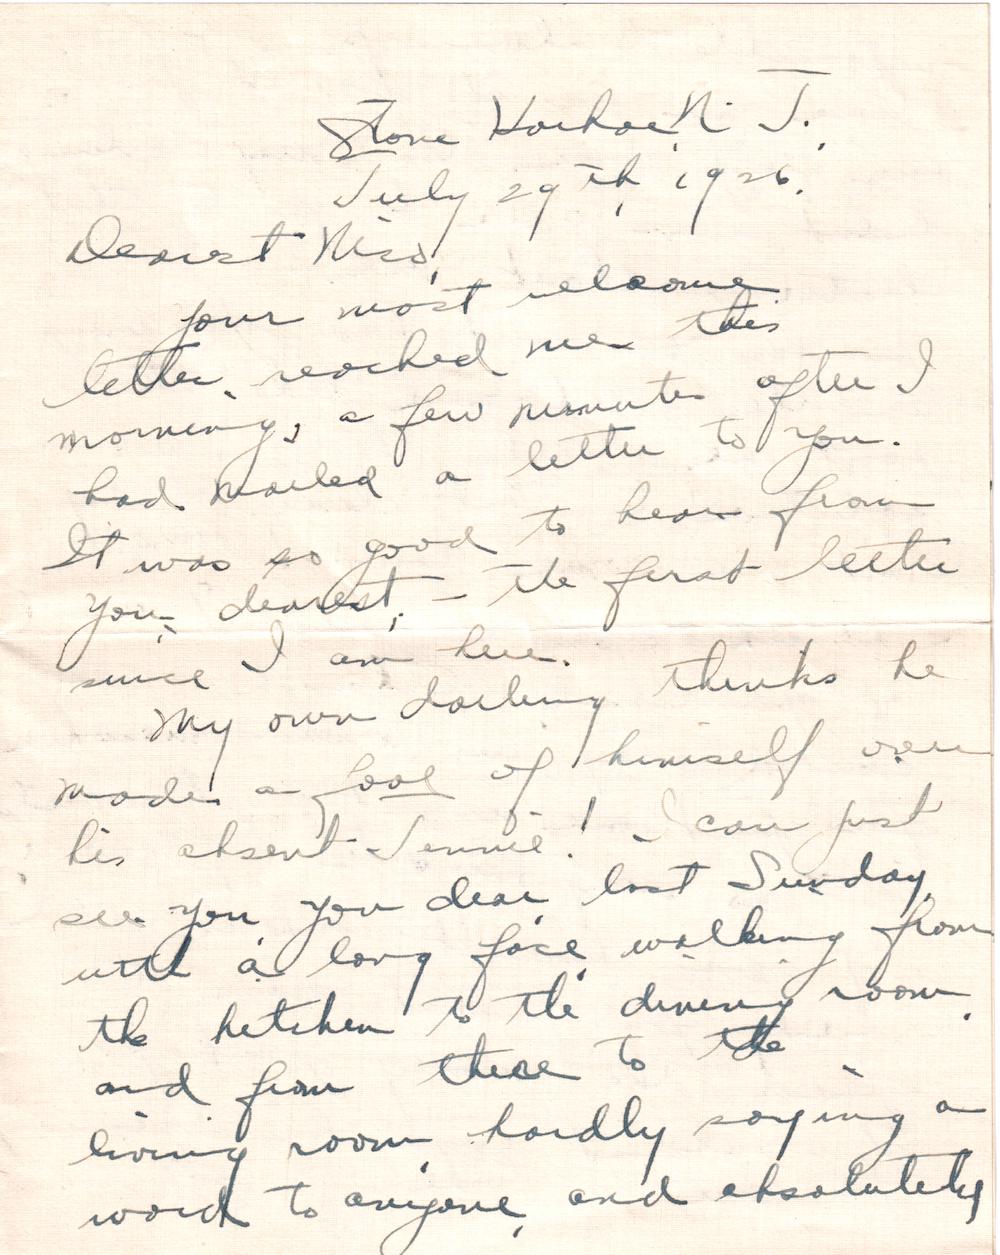 Stone Harbor, N. J.,
July 29th, 1926.
Dearest Nico,
Your most welcome
letter reached me this
morning, a few minutes after I
had mailed a letter to you.
It was so good to hear from
you, dearest, – the first letter
since I am here.
My own darling thinks he
made a fool of himself over
his absent Jennie! – I can just
see you, you dear, last Sunday,
with a long face, walking from
the kitchen to the dining room,
and from there to the
living room, hardly saying a
word to anyone, and absolutely